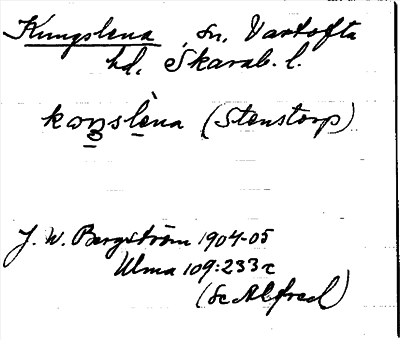 Kungslena, sn, Vartofta
hd, Skarab. l.
kωŋslèna (Stenstorp)
J. W. Bergström 1904-05
Ulma 109:233
(se Alfred)